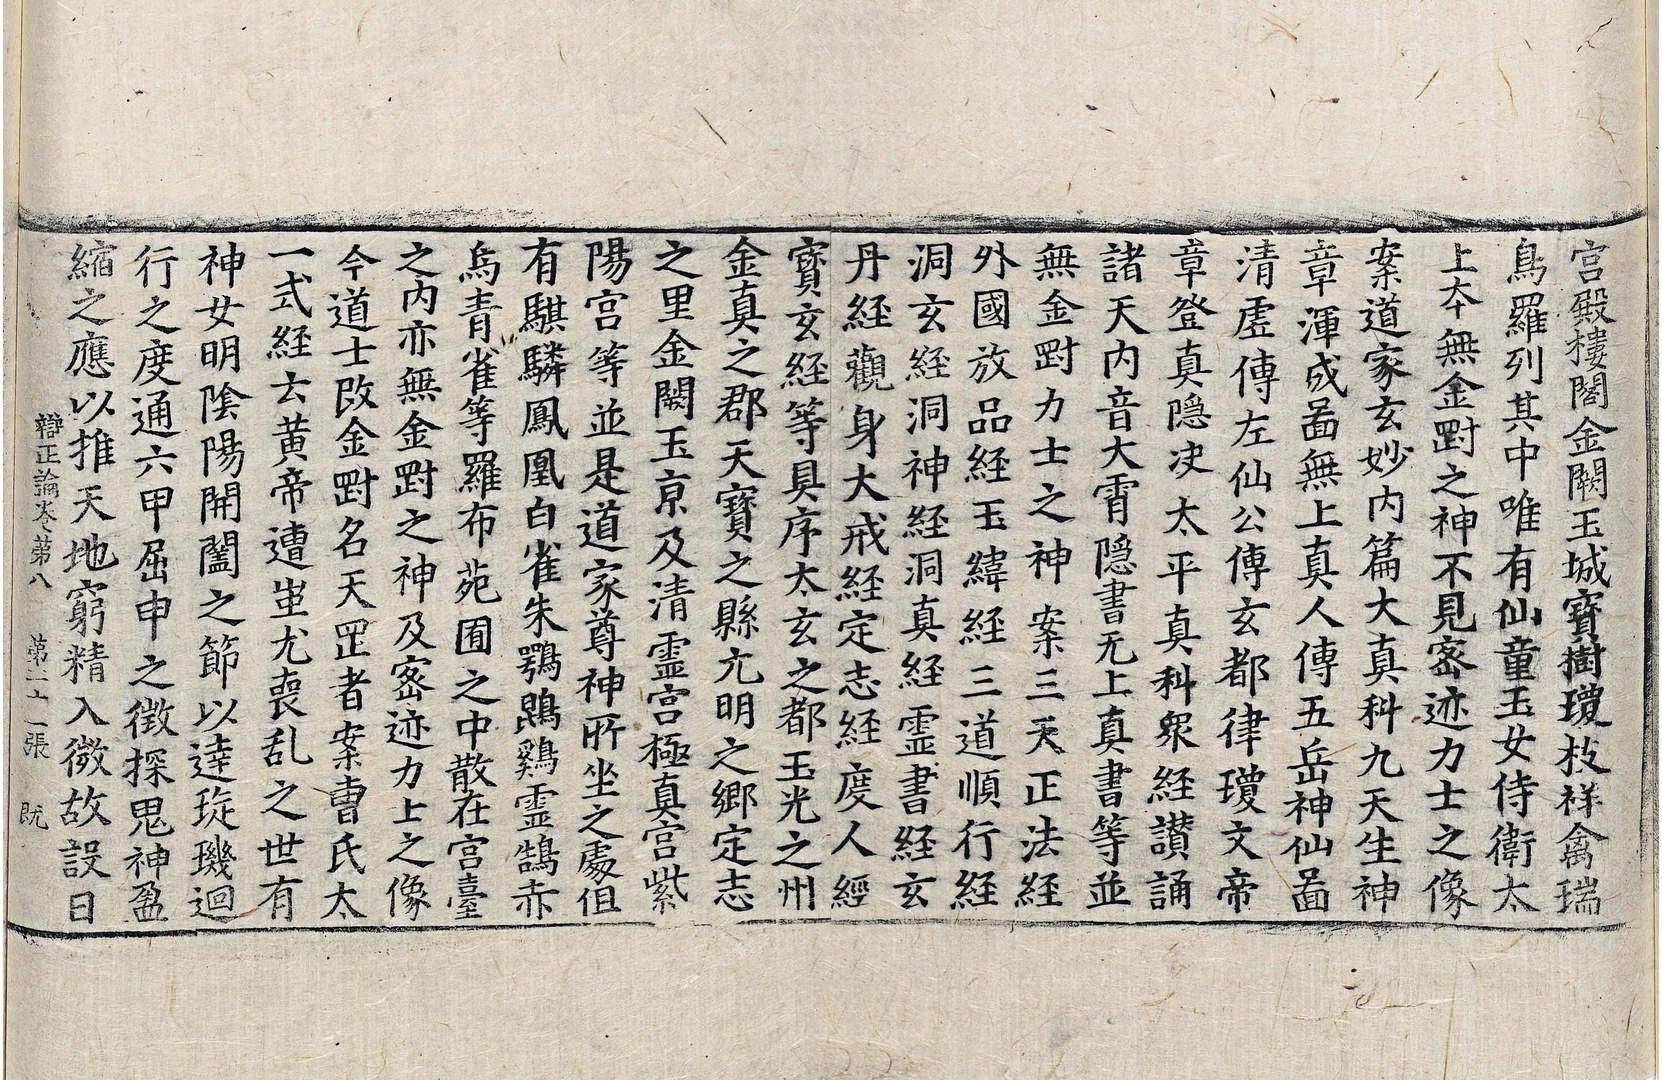 宮殿樓閣金闕玉城寶樹瓊枝祥禽瑞
鳥羅列其中唯有仙童玉女侍衛太
上夲無金㓻之神不見宻迹力士之像
案道家玄妙內篇大真科九天生神
章渾成啚無上真人傳五岳神仙啚
清虛傳左仙公傳玄都律瓊文帝
章登真隱决太平真科衆經讃誦
諸天內音大霄隱書无上真書等並
無金㓻力士之神案三天正法經
外國放品經玉緯經三道順行經
洞玄經洞神經洞真經靈書經玄
丹經觀身大戒經定志經度人經
寶玄經等具序太玄之都玉光之州
金真之郡天寶之縣亢明之鄉定志
之里金闕玉京及清靈宮極真宮紫
陽宮等並是道家尊神所坐之處但
有騏驎鳳凰白雀朱鶚鵾鷄靈鵠赤
烏青雀等羅布苑囿之中散在宮臺
之內亦無金㓻之神及宻迹力士之像
今道士改金㓻名天罡者案曹氏太
一式經云黃帝遭蚩尤喪乱之世有
神女明陰陽開闔之節以逹琁璣迴
行之度通六甲屈申之徵探鬼神盈
縮之應以推天地窮精入微故設日
辯正論卷第八 第二十一張 既